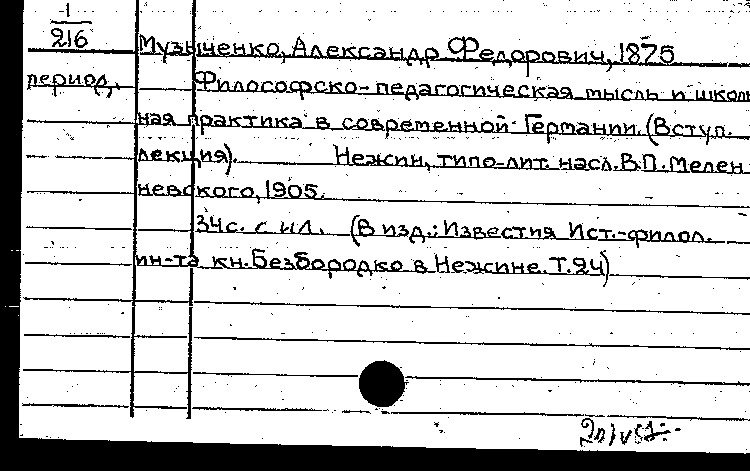 1
216
Музыченко, Александр Федорович, 1875
период. Философско-педагогическая мысль и школь
ная практика в современной Германии. (Вступ.
лекция). Нежин, типо-лит. насл. В.П. Мелен
невского, 1905.
34с. с ил. (В изд.: Известия Ист.-филол.
ин-та кн. Безбородко в Нежине. Т. 24)